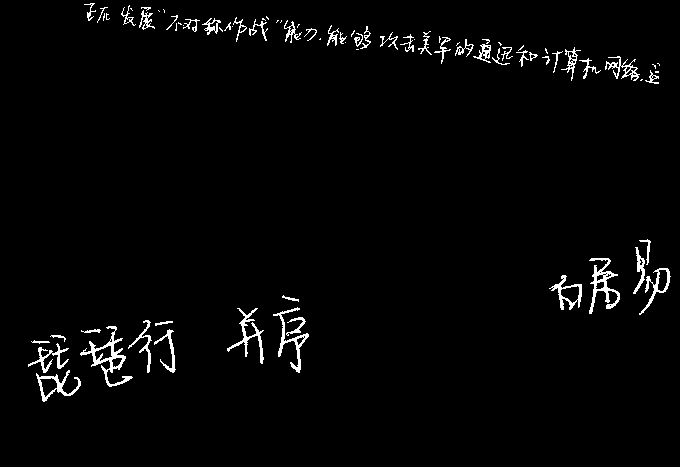 正在发展“不对称作战”能力.能够攻击美军的通迅和计算机网络.这
白居易
琵琶行 并序